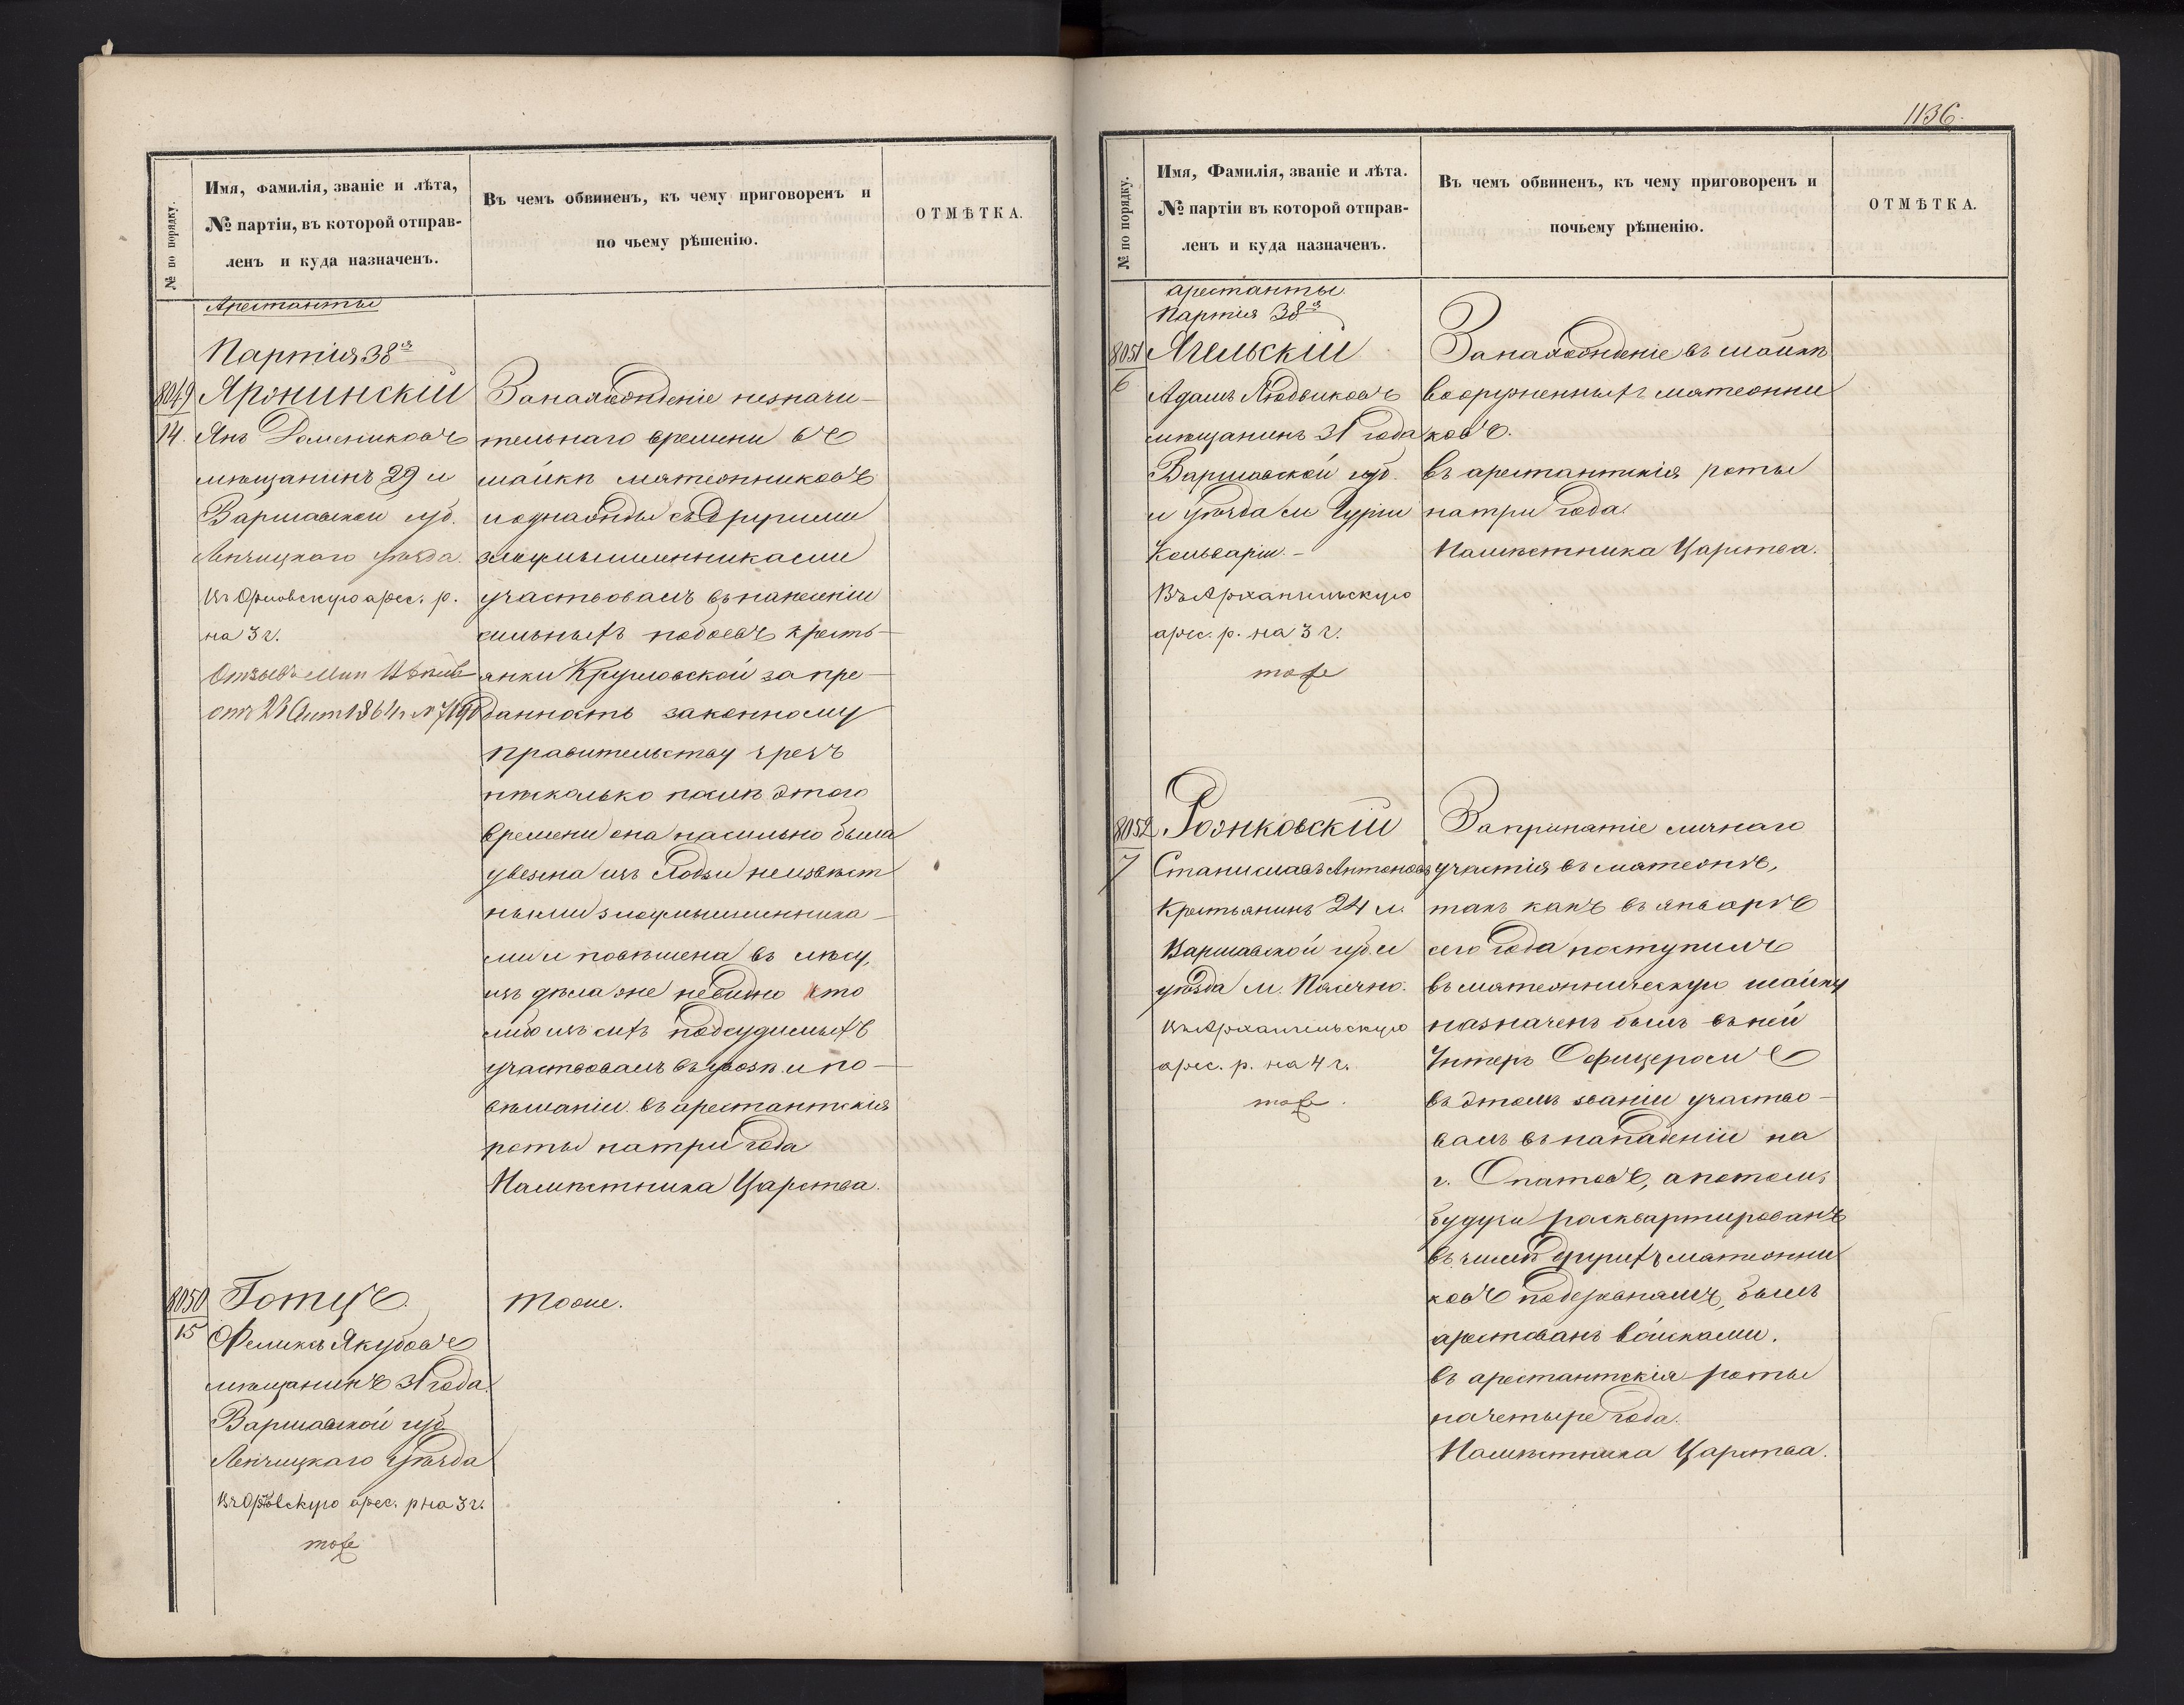 № по порядку.
Имя, фамилія, званіе и лѣта,
№ партіи, въ которой отправ-
ленъ и куда назначенъ.
Въ чемъ обвиненъ, къ чему приговоренъ и
по чьему рѣшенію.
ОТМѢТКА.
Арестанты
Партія 38я
8049
14.
Яронинскій
Янъ Домениковъ
мѣщанинъ 29 л
Варшавской губ.
Ленчицкаго уѣзда.
Въ Орловскую арес. р.
на 3 г.
Отзывъ Мин
от 23 1864 г №
За нахожденіе незначи-
тельнаго времени въ
шайкѣ мятежниковъ
и однажды съ другими
злоумышленниками
участвовалъ въ нанесеніи
сильныхъ побоевъ кресть-
янки Круповской за пре-
данность законному
правительству чрезъ
нѣсколько послѣ этого
времени она насильно была
увезена изъ Лодзи неизвѣст
ными злоумышленника-
ми и повѣшена въ лѣсу,
изъ дѣла же невидно кто
либо изъ сихъ подсудимыхъ
участвовалъ въ увозѣ и по-
вѣшаніи. въ арестантскія
роты на три года
Намѣстника Царства.
8050
15
Готцъ
Феликсъ Якубовъ
мѣщанинъ 31 года.
Варшавской губ.
Ленчицкаго Уѣзда
Въ Орловскую арес. р на 3 г.
тоже
Тоже.
1136.
№ по порядку.
Имя, Фамилія, званіе и лѣта.
№ партіи въ которой отправ-
ленъ и куда назначенъ.
Въ чемъ обвиненъ, къ чему приговоренъ и
почьему рѣшенію.
ОТМѢТКА.
арестанты
Партія 38я
8051
6
Ягельскій
Адамъ Людвиковъ
мѣщанинъ 31 года
Варшавской губ.
и Уѣзда м Гурги
Кальварiи.-
Въ Архангельскую
арес. р. на 3 г.
тоже
За нахожденіе въ шайкѣ
вооруженныхъ мятежни
ковъ.
въ арестантскія роты
на три года.
Намѣстника Царства.
8052
7
Рожковскій
Станиславъ Антоновъ
Крестьянинъ 24 л.
Варшавской губ. и
уѣзда м. Пясечно.
Въ Архангельскую
арес. р. на 4 г.
тоже.
За принятіе личнаго
участія въ мятежѣ,
такъ какъ въ январѣ
сего года поступилъ
въ мятежническую шайку
назначенъ былъ въ ней
Унтеръ Офицеромъ
въ этомъ званіи участво-
валъ въ нападеніи на
г. Опатовъ, а потомъ,
будучи расквартированъ
въ числѣ другихъ мятежни
ковъ былъ
арестованъ войсками.
въ арестантскія роты
на четыре года.
Намѣстника Царства.